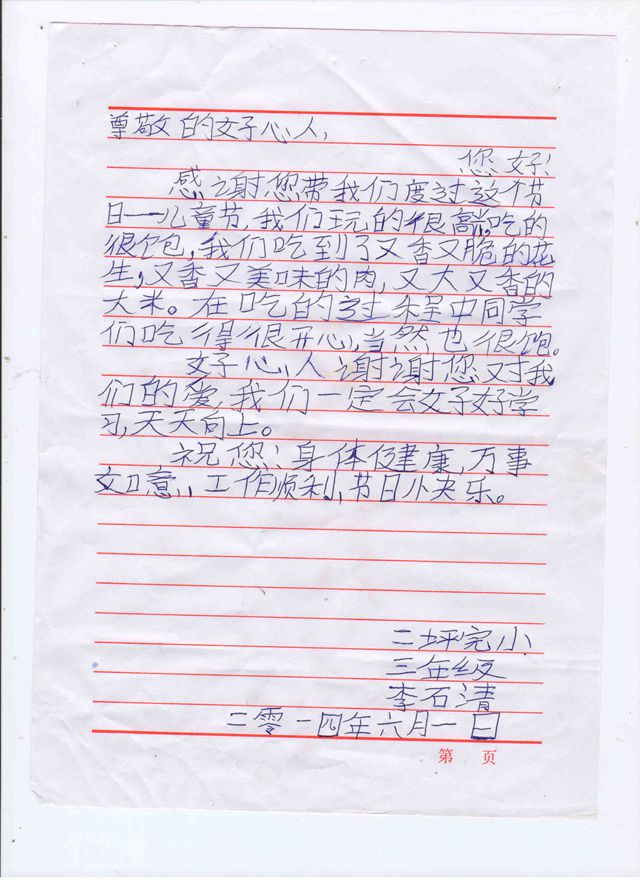 尊敬的好心人，
您好！
感谢您带我们度过这个节
日——儿童节，我们玩的很高兴。吃的
很饱，我们吃到了又香又脆的花
生，又香又美味的肉，又大又香的
大米。在吃的过程中同学
们吃得很开心，当然也很饱。
好心人谢谢您对我
们的爱，我们一定会好好学
习，天天向上。
祝您：身体健康，万事
如意，工作顺利，节日快乐。
二坪完小
三年级
李石清
二零一四年六月一日
第 页